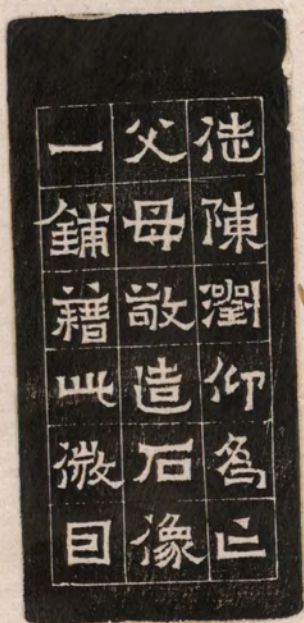 徒陳瀏仰為亡
父母敬造石像
一鋪藉此微囙